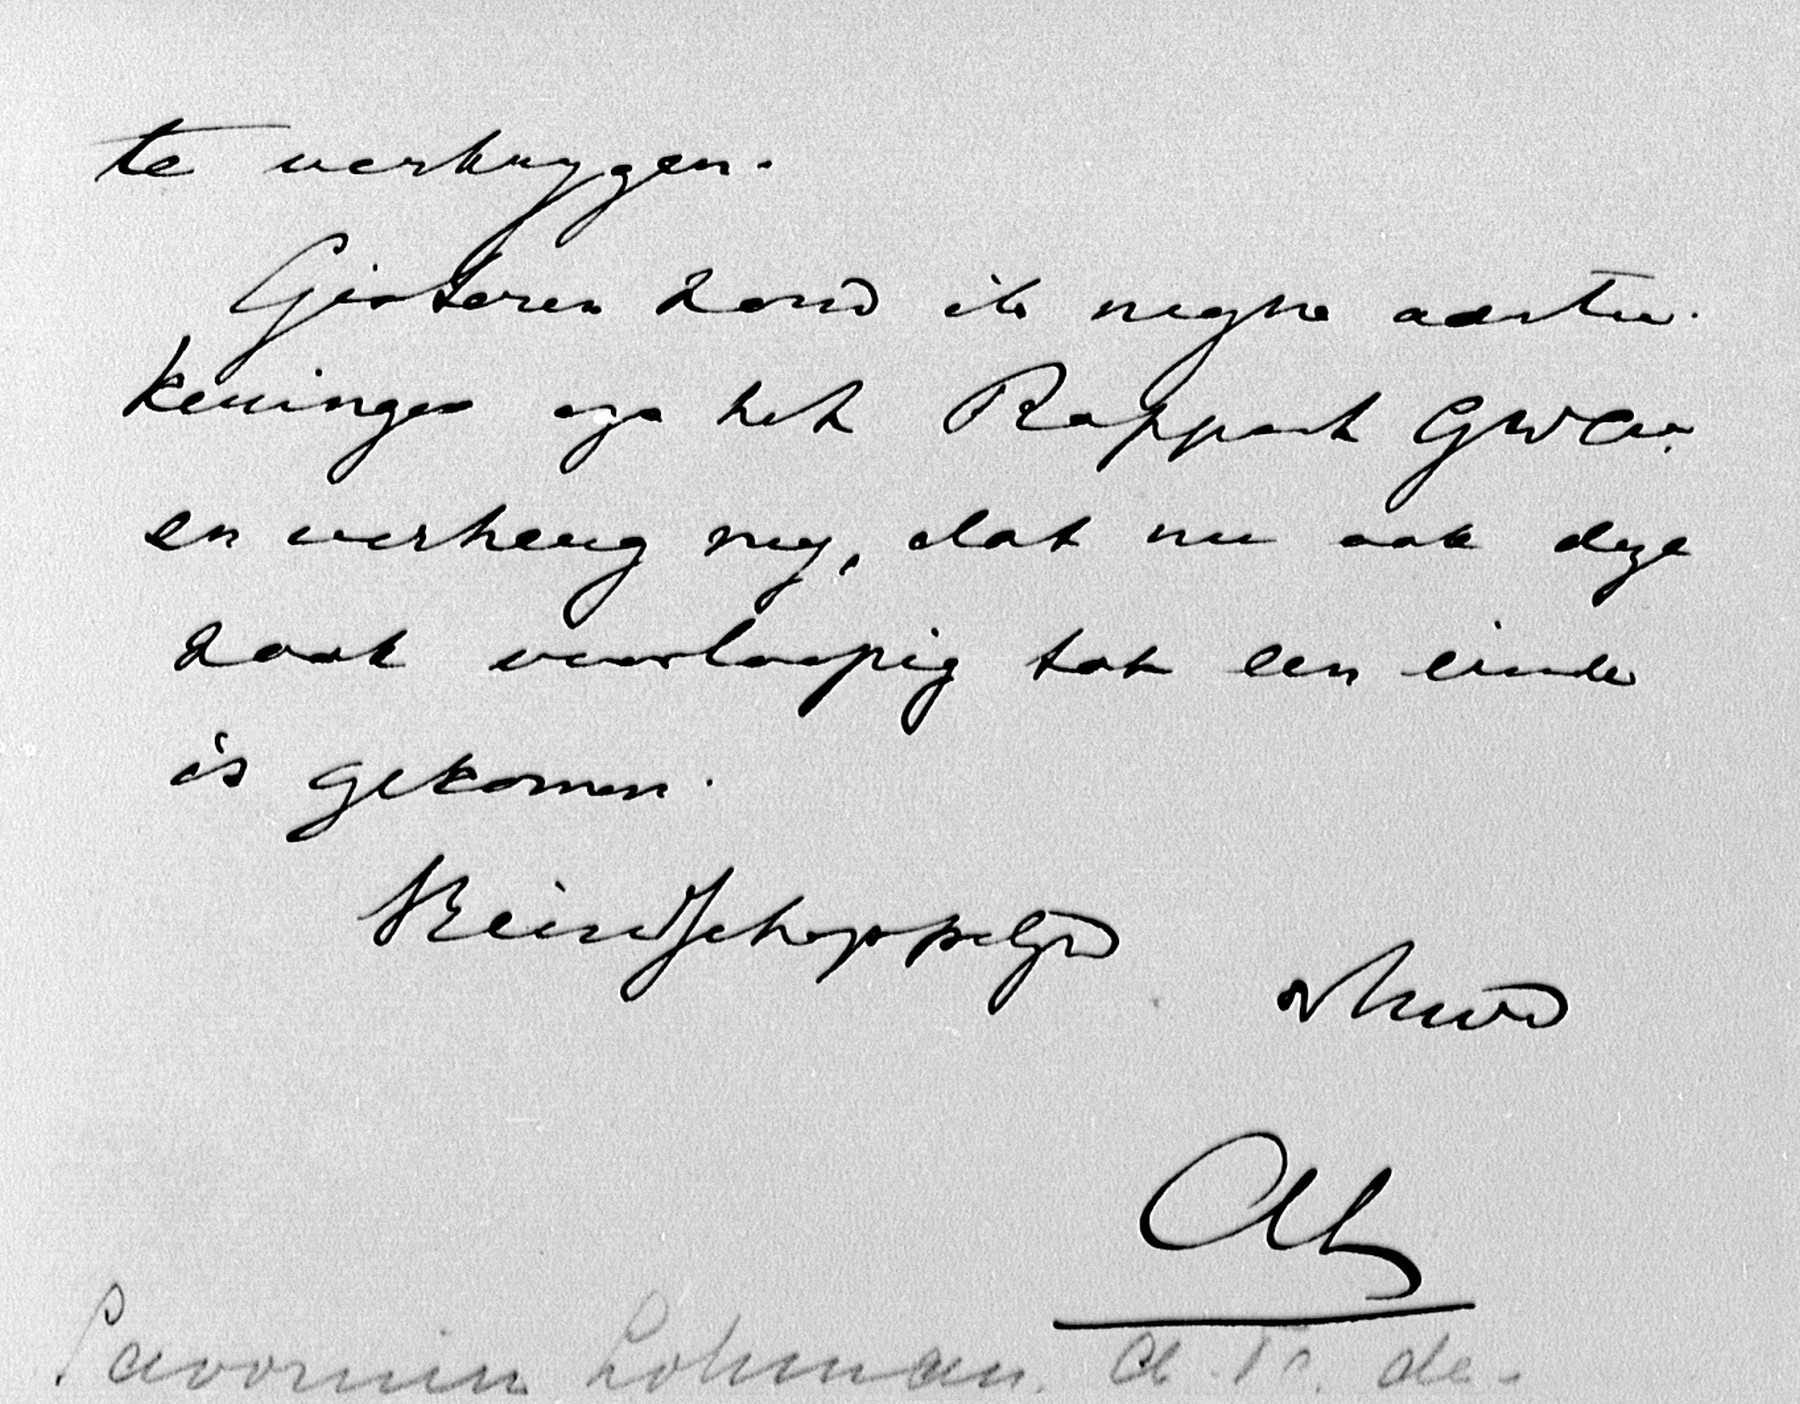 te verkrygen.
Gisteren zond ik mijne aantee-
keningen op het Rapport GWC.
en verheug my, dat nu ook deze
zaak voorloopig tot een einde
is gekomen.
Vriendschappelijk
AL
Savornin Lohman. de